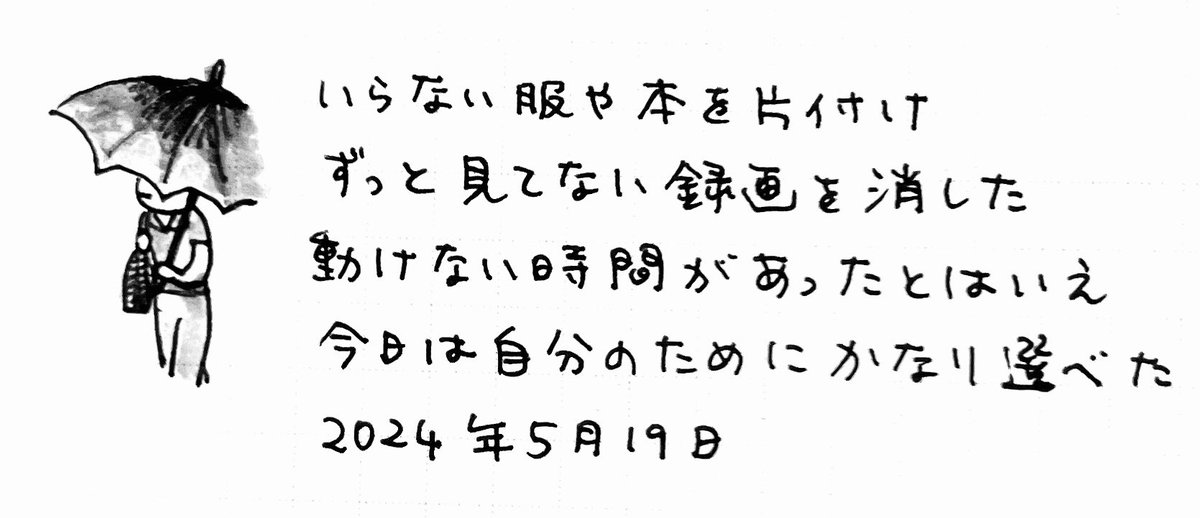 いらない服や本を片付け
ずっと見てない録画を消した
動けない時間があったとはいえ
今日は自分のためにかなり選べた
2024年5月19日